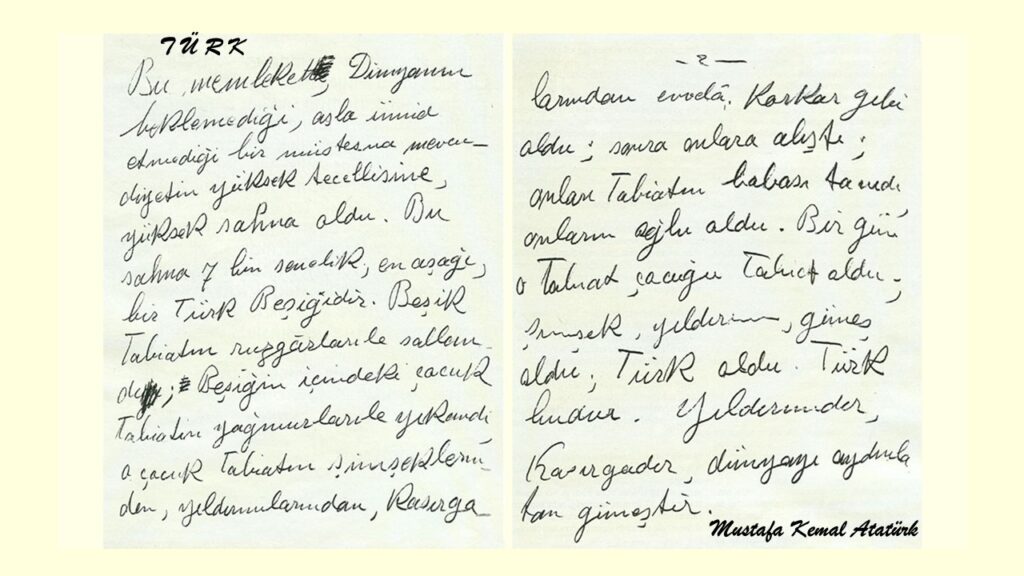 TÜRK
Bu memleket, Dünyanın
beklemediği, asla ümid
etmediği bir müstesna mevcu-
diyetin yüksek tecellisine,
yüksek sahna oldu. Bu
sahna 7 bin senelik, en aşağı,
bir Türk Beşiğidir. Beşik
Tabiatın ruzgârlarile sallan-
dı; Beşiğin içindeki çocuk
Tabiatın yağmurlarile yıkandı,
o çocuk Tabiatın şimşeklerin-
den, yıldırımlarından, Kasırga
- 2 -
larından evvelâ, Korkar gibi
oldu; sonra onlara alıştı;
onları Tabiatın babası tanıdı,
onların oğlu oldu. Bir gün
o Tabiat çocuğu Tabiat oldu;
şimşek, yıldırım, güneş
oldu; Türk oldu. Türk
budur. Yıldırımdır,
Kasırgadır, dünyayı aydınla
tan güneştir.
Mustafa Kemal Atatürk